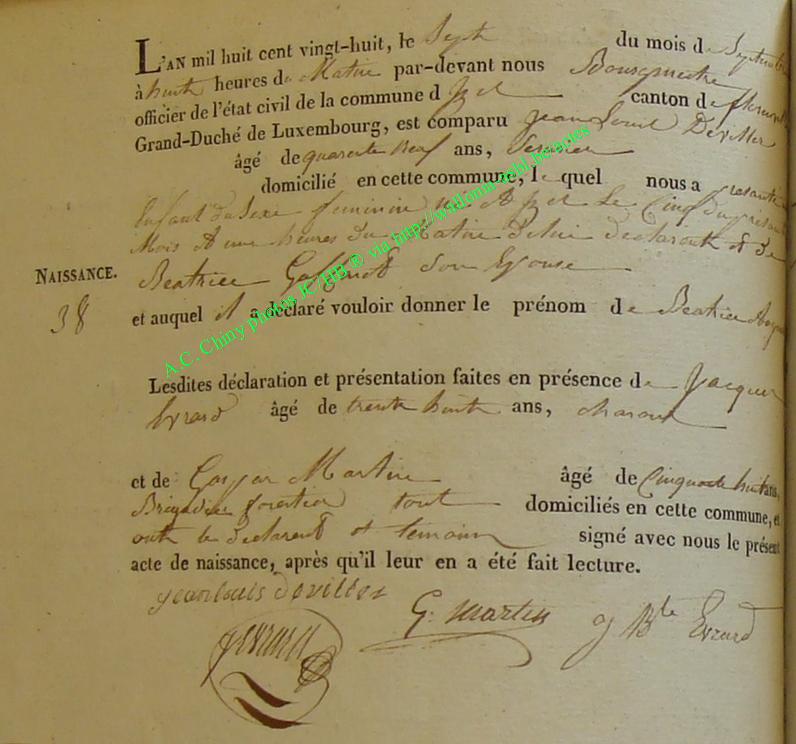 L'AN mil huit cent vingt-huit, le Sept du mois de Septembre
à huit heures du Matin par-devant nous Bourgmestre
officier de l'état civil de la commune d canton de
Grand-Duché de Luxembourg, est comparu jean Louis Deviller
âgé de quarente neuf ans,
domicilié en cette commune, le quel nous a presenté
Enfant du Sexe feminin né A Le Cinq du présent
Mois A une heures du Matin de lui declarant et de
NAISSANCE. Beatrice son Epouse
38 et auquel il a déclaré vouloir donner le prénom de Beatrice
Lesdites déclaration et présentation faites en présence de Jacques
Evrard âgé de trente huit ans, charon
et de Gaspar Martin âgé de Cinquante huit ans,
Brigadier forestier tout domiciliés en cette commune, et
ont le declarant et temoins signé avec nous le présent
acte de naissance, après qu'il leur en a été fait lecture.
jean louis deviller
G. martin
j Bte Evrard
A.C. Chiny photos JC/HB ® via http://wallonia-aebl.be/actes